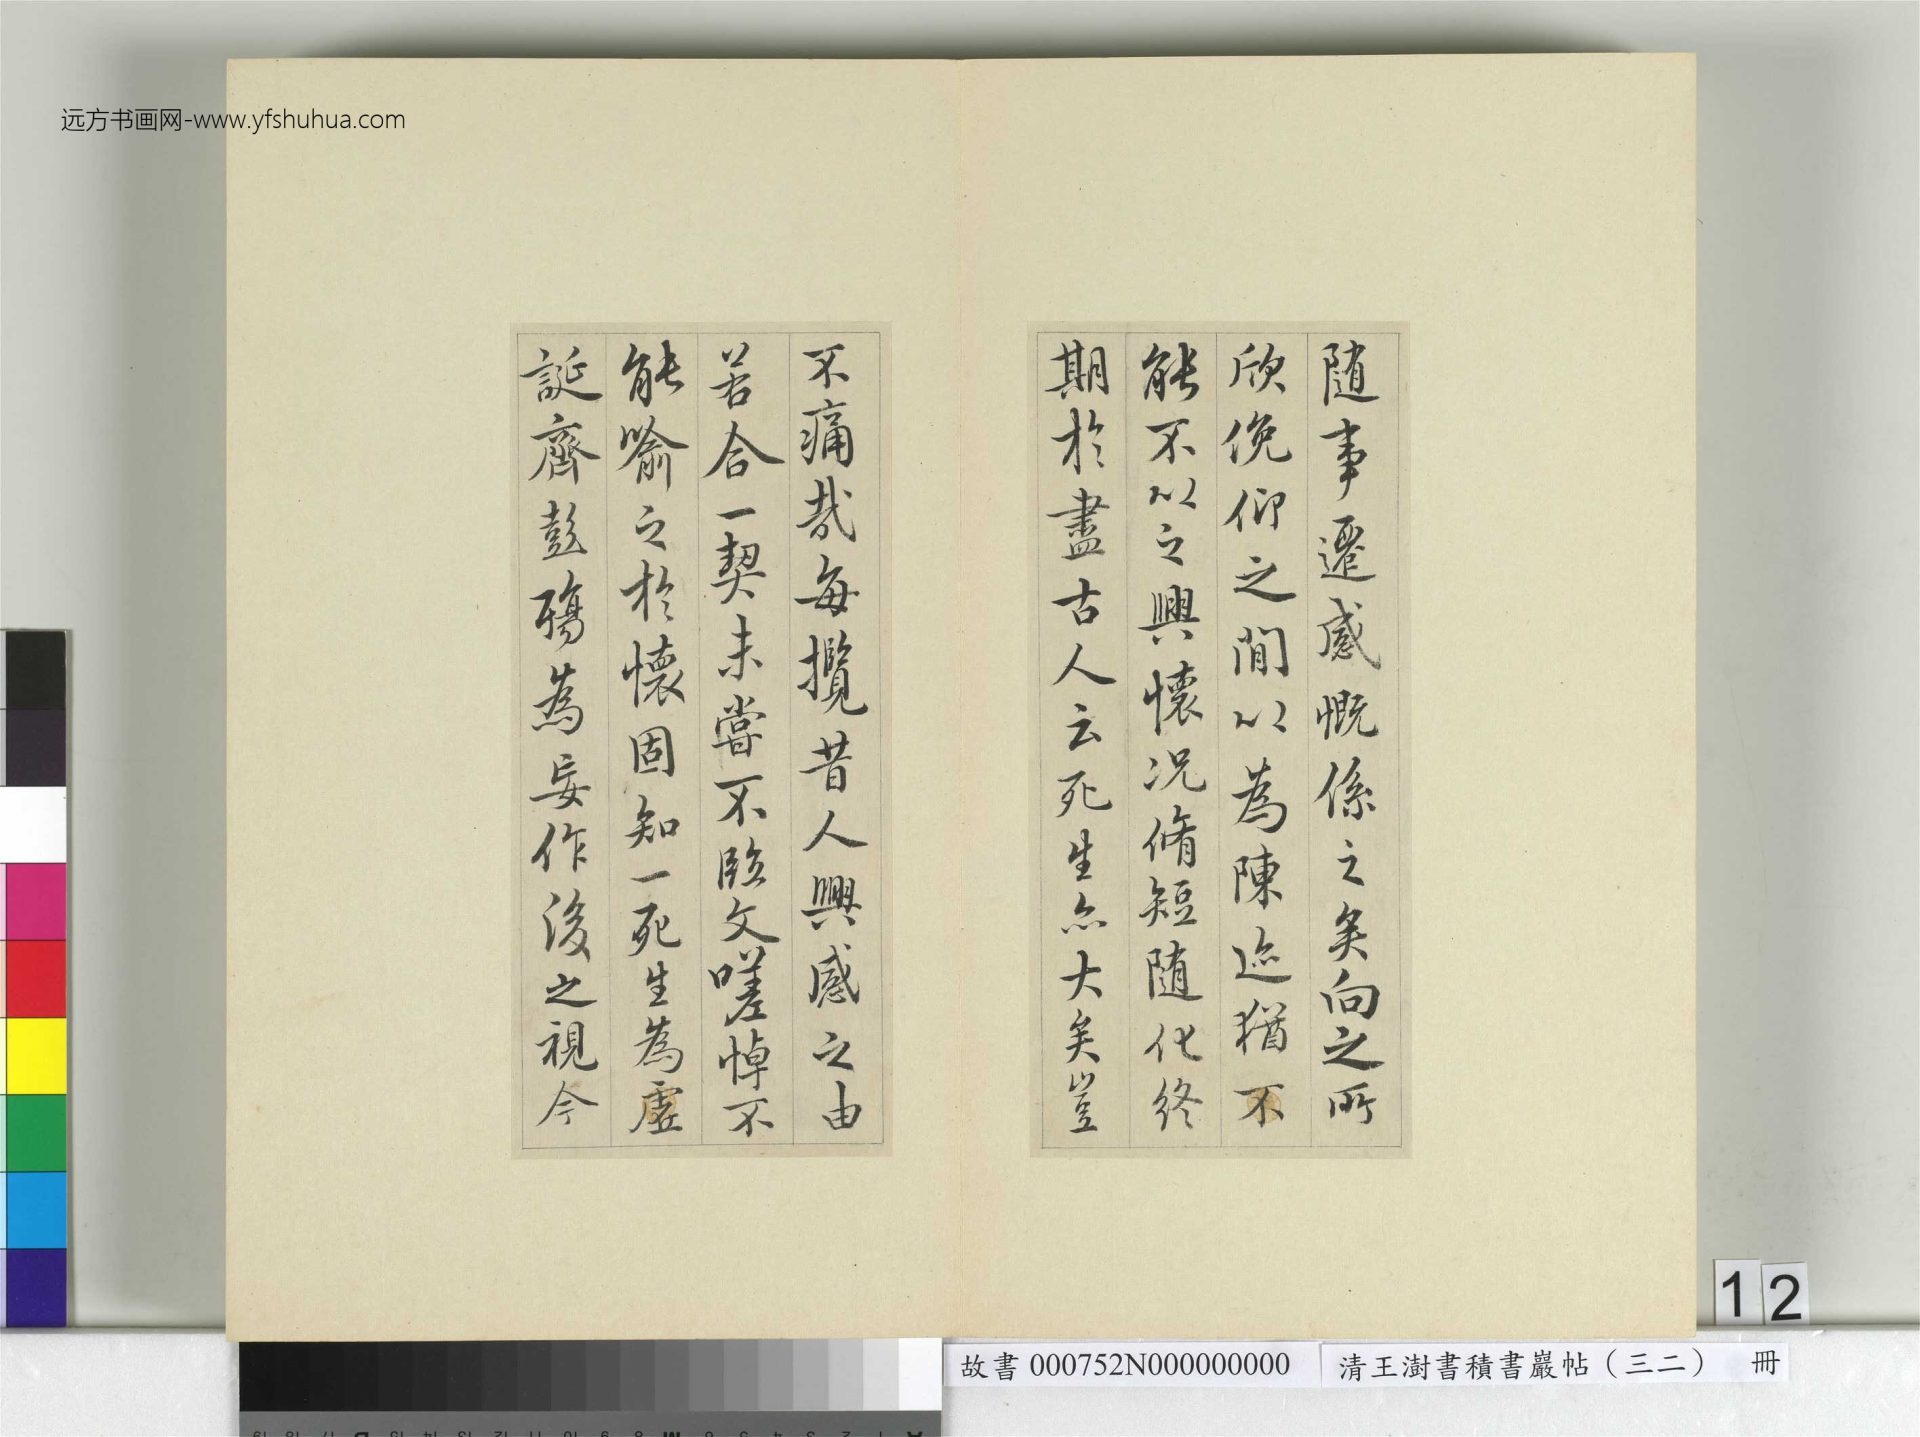 远方书画网-www.yfshuhua.com
随事遷感慨係之矣向之所
欣俛仰之間以為陳迹猶不
能不以之興懷況脩短随化終
期於盡古人云死生亦大矣豈
不痛哉每攬昔人興感之由
若合一契未嘗不臨文嗟悼不
能喻之於懷固知一死生為虛
誕齊彭殤為妄作後之視今
12
故書000752N000000000
清王澍書積書巖帖（三二） 冊